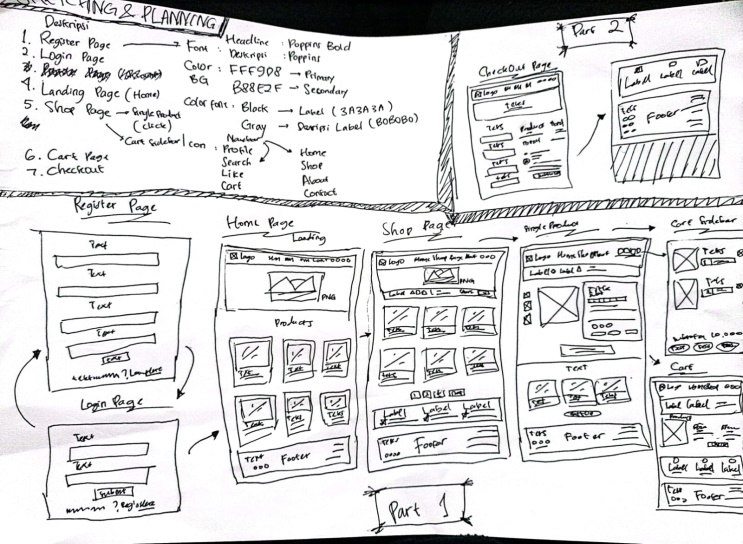 SKETCHING & PLANNING
Deskripsi
1. Register Page
2. Login Page
3.
4. Landing Page (Home)
5. Shop Page → Single Product
(click)
Cart Sidebar
6. Cart Page
7. Checkout
Font : Headline : Poppins Bold
Deskripsi : Poppins
Color : FFF9D8 → Primary
BG B88E2F → Secondary
Color font : Black → Label (3A3A3A)
Gray → Deskripsi Label (B0B0B0)
Icon : Navbar
Profile
Search
Like
Cart
Home
Shop
About
Contact
Part 2
CheckOut Page
Logo
Teks
Teks
Teks
Teks
Teks
Label Label Label
Teks
Footer
Register Page
Text
Text
Text
Text
Login Page
Text
Text
Submit
Home Page
Landing
Logo
PNG
Products
Teks Teks Teks
Teks Teks Teks
Text Footer
Shop Page
Logo
PNG
Label
Teks Teks Teks
Teks Teks Teks
Label Label Label
Teks Footer
Single Product
Logo
Label Label
TEXT
Teks Teks Teks
Teks Footer
Cart Sidebar
Teks
Teks
Cart
Logo
Label Label
Label Label Label
Teks Footer
Part 1